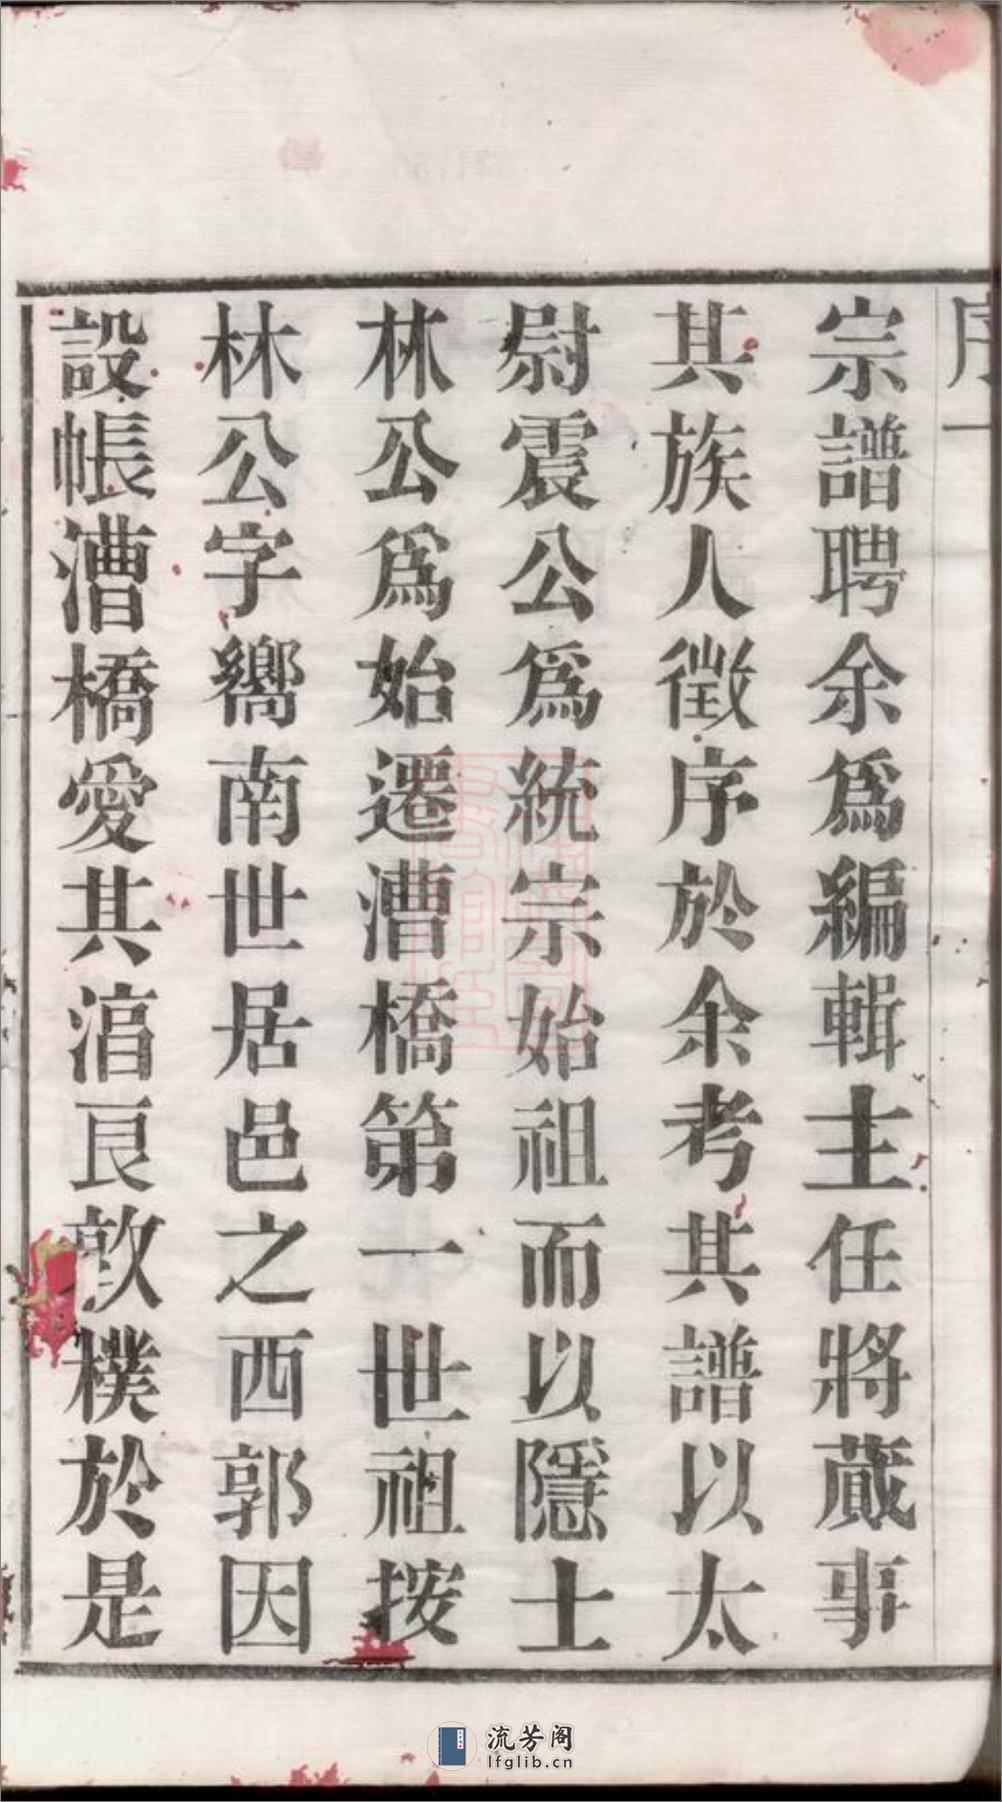 序一
宗譜聘余爲編輯主任將蕆事
其族人徵序於余考其譜以太
尉震公爲統宗始祖而以隱士
林公爲始遷漕橋第一世祖按
林公字嚮南世居邑之西郭因
設帳漕橋愛其湻良敦樸於是
流芳阁
lfglib.cn